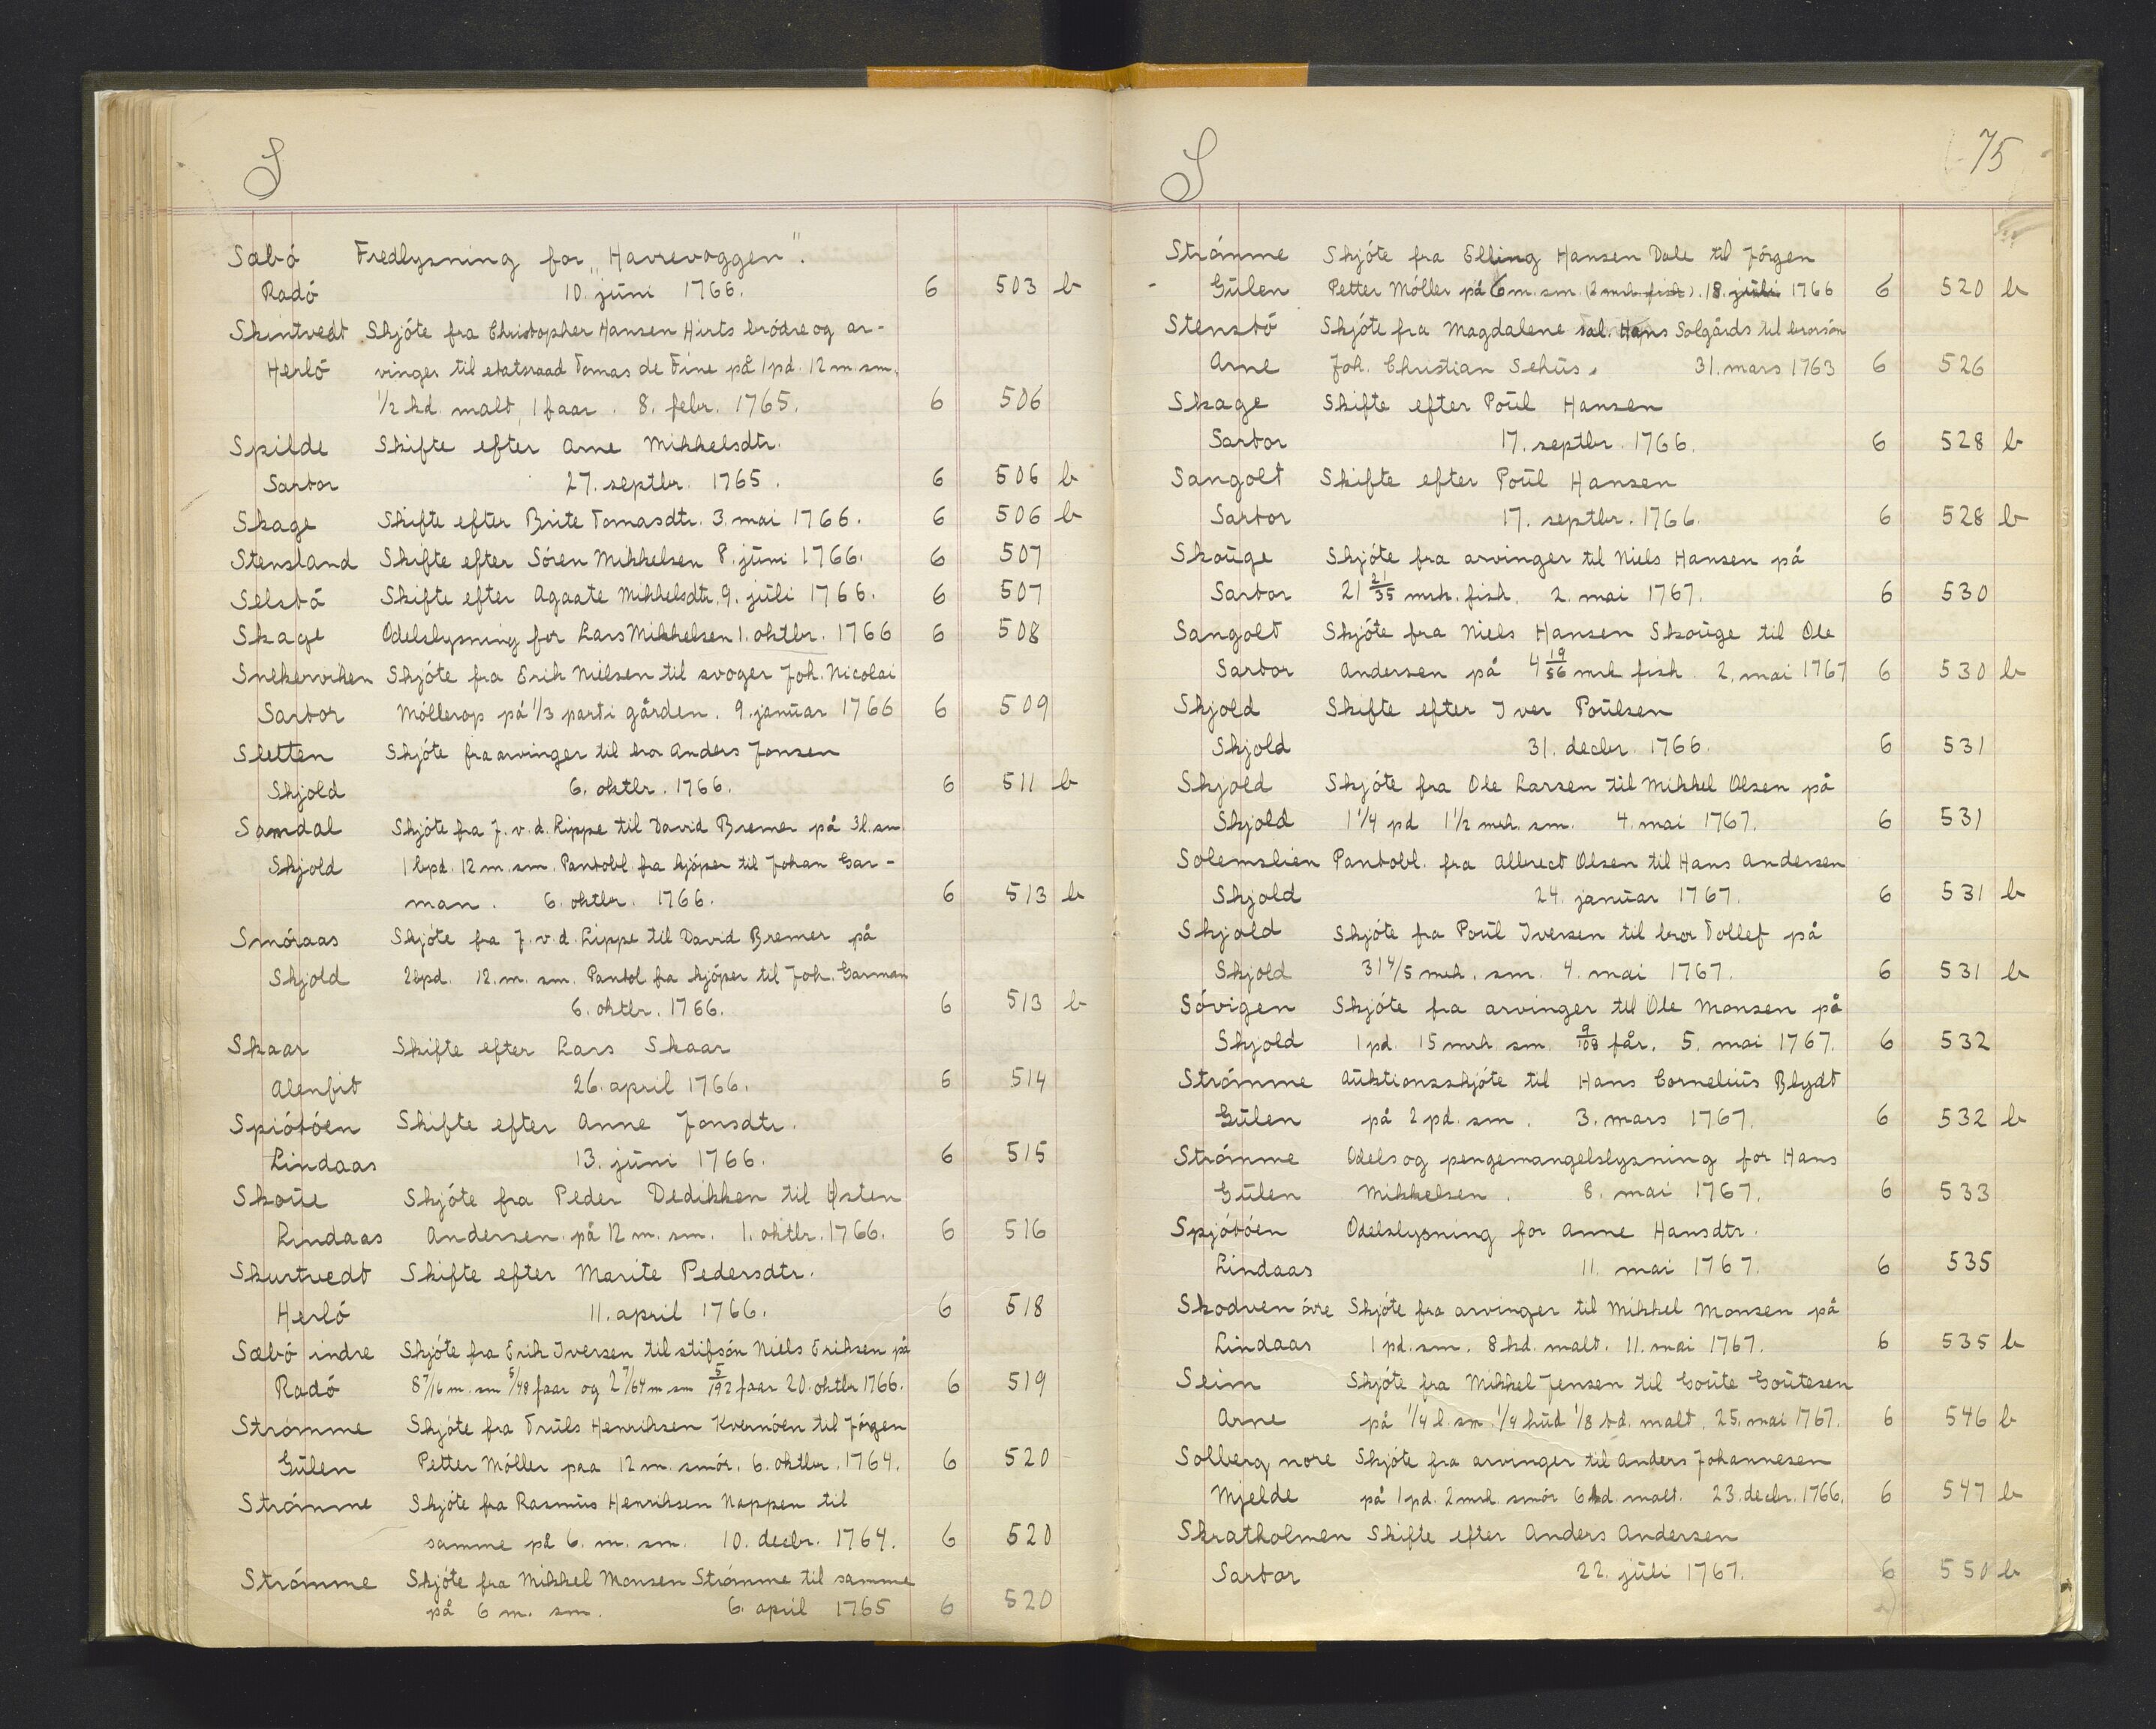 S
Sæbö Fredlysning for „Havrevaggen".
Radö 10. juni 1766. 6 503 b
Skintvedt Skjöte fra Christopher Hansen Hirts brödre og ar-
Herlö vinger til etatsraad Tomas de Fine på 1 pd. 12 m. sm.
1/2 hd. malt, 1 faar. 8. febr. 1765. 6 506
Spilde Skifte efter Arne Mikkelsdtr.
Sartor 27. septbr. 1765. 6 506 b
Skage Skifte efter Brite Tomasdtr. 3. mai 1766. 6 506 b
Stensland Skifte efter Sören Mikkelsen 8. juni 1766. 6 507
Selstö Skifte efter Agaate Mikkelsdtr. 9. juli 1766. 6 507
Skage Odelslysning for Lars Mikkelsen 1. oktbr. 1766 6 508
Snekerviken Skjöte fra Erik Nielsen til svoger Joh. Nicolai
Sartor Möllerop på 1/3 parti gården. 9. januar 1766 6 509
Sletten Skjöte fra arvinger til bror Anders Jonsen
Skjold 6. oktbr. 1766. 6 511 b
Samdal Skjöte fra J. v. d. Lippe til David Bremer på 3 l. sm.
Skjold 1 bpd. 12 m. sm. Pantobl. fra kjöper til Johan Gar-
man. 6. oktbr. 1766. 6 513 b
Smöraas Skjöte fra J. v. d. Lippe til David Bremer på
Skjold 2 bpd. 12. m. sm. Pantol fra kjöper til Joh. Garman
6. oktbr. 1766. 6 513 b
Skaar Skifte efter Lars Skaar
Alenfit 26. april 1766. 6 514
Spiötöen Skifte efter Anne Jonsdtr.
Lindaas 13. juni 1766. 6 515
Skoue Skjöte fra Peder Dedikken til Østen
Lindaas Andersen på 12 m. sm. 1. oktbr. 1766. 6 516
Skurtvedt Skifte efter Marite Pedersdtr.
Herlö 11. april 1766. 6 518
Sæbö indre Skjöte fra Erik Iversen til stifsön Niels Eriksen på
Radö 8 7/16 m. sm 5/48 faar og 2 7/64 m sm 5/192 faar 20. oktbr 1766. 6 519
Strömme Skjöte fra Truls Henriksen Kvernöen til Jörgen
Gulen Petter Möller paa 12 m. smör. 6. oktbr. 1764. 6 520
Strömme Skjöte fra Rasmus Henriksen Nappen til
samme på 6. m. sm. 10. decbr. 1764. 6 520
Strömme Skjöte fra Mikkel Monsen Strömme til samme
på 6 m. sm. 6. april 1765 6 520
S 75
Strömme Skjöte fra Elling Hansen Dale til Jörgen
Gulen Petter Möller på 6 m. sm. (2 mrk. fisk). 18. juli 1766 6 520 b
Stenstö Skjöte fra Magdalene sal. Hans Solgårds til brorsön
Arne Joh. Christian Sehus. 31. mars 1763 6 526
Skage Skifte efter Poul Hansen
Sartor 17. septbr. 1766. 6 528 b
Sangolt Skifte efter Poul Hansen
Sartor 17. septbr. 1766. 6 528 b
Skouge Skjöte fra arvinger til Niels Hansen på
Sartor 21 21/35 mrk. fisk. 2. mai 1767. 6 530
Sangolt Skjöte fra Niels Hansen Skouge til Ole
Sartor Andersen på 4 19/56 mrk fisk. 2. mai 1767 6 530 b
Skjold Skifte efter Iver Poulsen
Skjold 31. decbr. 1766. 6 531
Skjold Skjöte fra Ole Larsen til Mikkel Olsen på
Skjold 1 1/4 pd 1 1/2 mrk. sm. 4. mai 1767. 6 531
Solemslien Pantobl. fra Albrect Olsen til Hans Andersen
Skjold 24. januar 1767. 6 531 b
Skjold Skjöte fra Poul Iversen til bror Tollef på
Skjold 31 4/5 mrk. sm. 4. mai 1767. 6 531 b
Sövigen Skjöte fra arvinger til Ole Monsen på
Skjold 1 pd. 15 mrk sm. 9/108 får. 5. mai 1767. 6 532
Strömme Auktionsskjöte til Hans Cornelius Blydt
Gulen på 2 pd. sm. 3. mars 1767. 6 532 b
Strömme Odels og pengemangelslysning for Hans
Gulen Mikkelsen. 8. mai 1767. 6 533
Spjötöen Odelslysning for Anne Hansdtr.
Lindaas 11. mai 1767. 6 535
Skodven övre Skjöte fra arvinger til Mikkel Monsen på
Lindaas 1 pd. sm. 8 kd. malt. 11. mai 1767. 6 535 b
Seim Skjöte fra Mikkel Jensen til Goute Goutesen
Arne på 1/4 l. sm. 1/4 hud 1/8 td. malt. 25. mai 1767. 6 546 b
Solberg nore Skjöte fra arvinger til Anders Johannesen
Mjelde på 1 pd. 2 mrk. smör 6 kd. malt. 23. decbr. 1766. 6 547 b
Skratholmen Skifte efter Anders Andersen
Sartor 22. juli 1767. 6 550 b